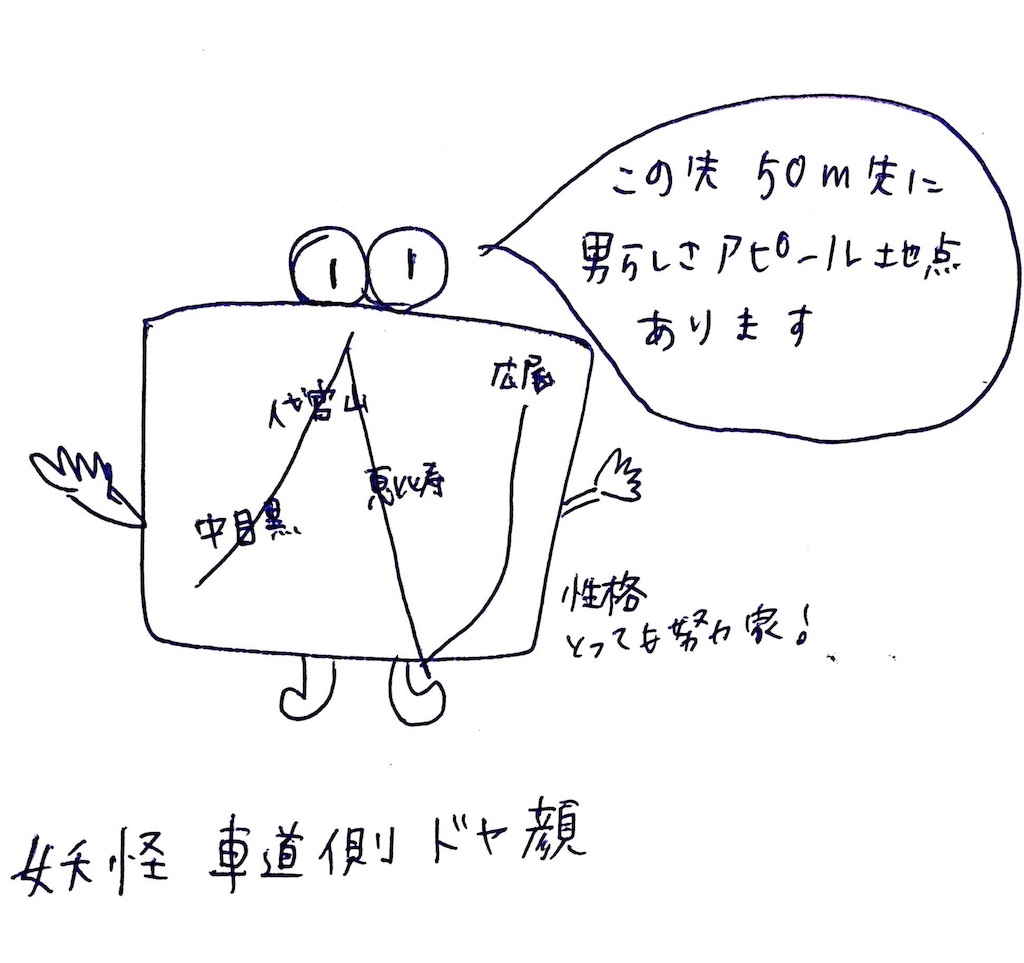 この先 50m先に
男らしさアピール地点
あります
広尾
代官山
恵比寿
中目黒
性格
とっても努力家!
妖怪 車道側 ドヤ顔